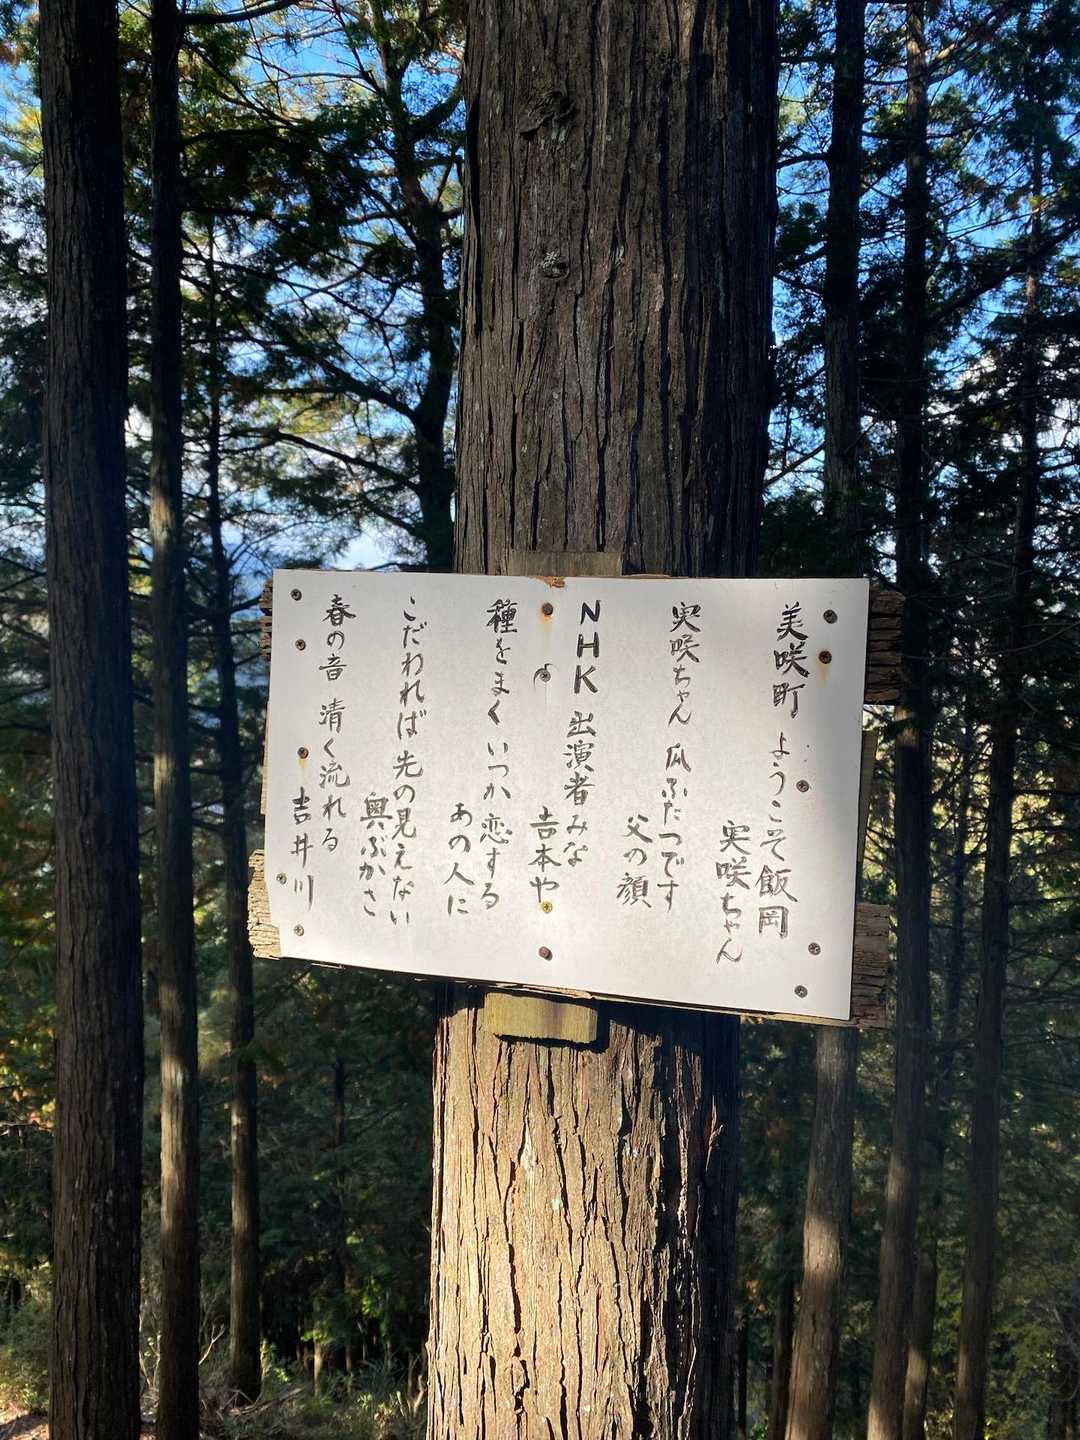 美咲町 ようこそ飯岡
実咲ちゃん
実咲ちゃん 瓜ふたつです
父の顔
NHK 出演者みな
吉本や
種をまく いつか恋する
あの人に
こだわれば先の見えない
奥ぶかさ
春の音 清く流れる
吉井川